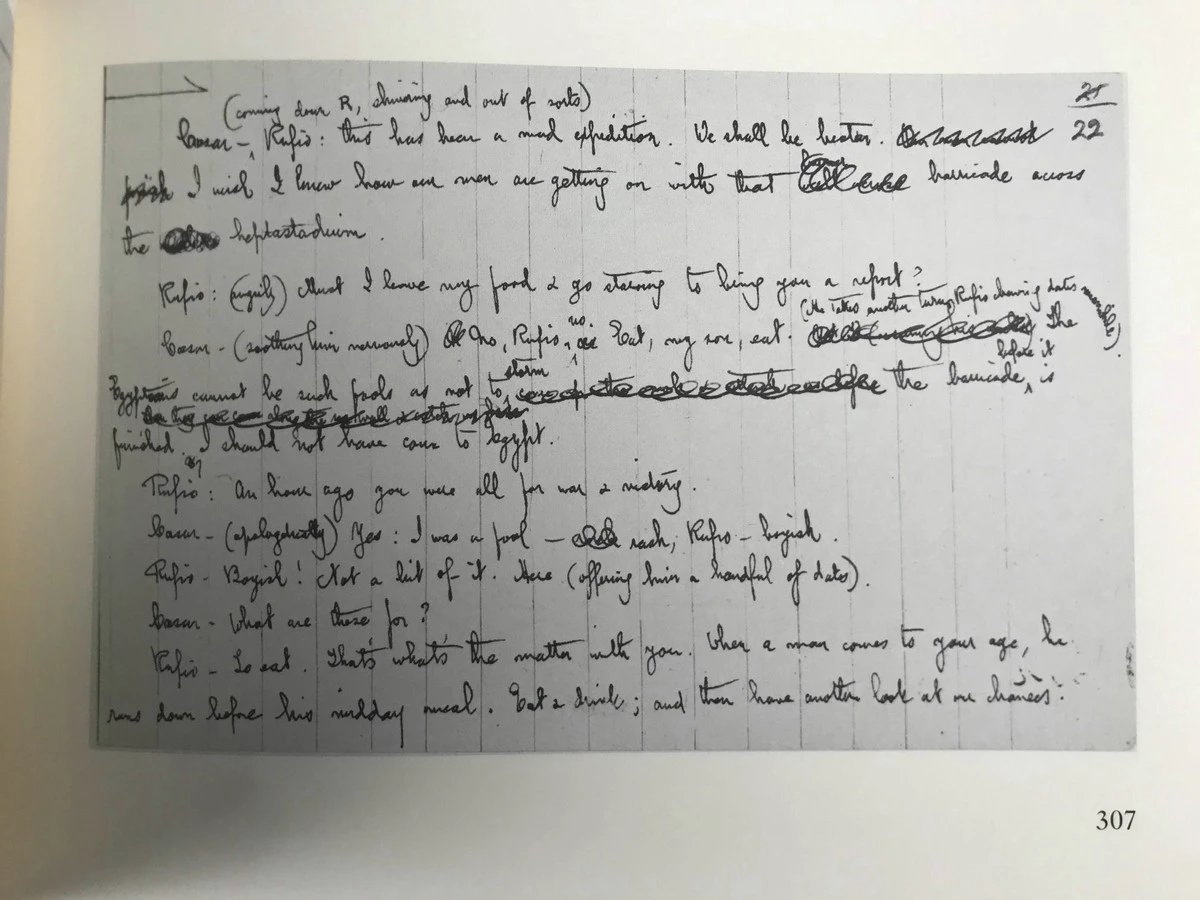 21
22
(coming down R, shivering and out of sorts)
Caesar – Rufio: this has been a mad expedition. We shall be beaten.
I wish I knew how our men are getting on with that barricade across
the heptastadium.
Rufio: (angrily) Must I leave my food & go starving to bring you a report?
(He takes another turn, Rufio chewing dates
Caesar – (soothing him nervously) No, Rufio, no. Eat, my son, eat. The
Egyptians cannot be such fools as not to storm the barricade before it is
finished. I should not have come to Egypt.
Rufio: An hour ago you were all for war & victory.
Caesar – (apologetically) Yes: I was a fool – rash, Rufio – boyish.
Rufio – Boyish! Not a bit of it. Here (offering him a handful of dates).
Caesar – What are these for?
Rufio – To eat. That's what's the matter with you. When a man comes to your age, he
runs down before his midday meal. Eat & drink; and then have another look at our chances.
307